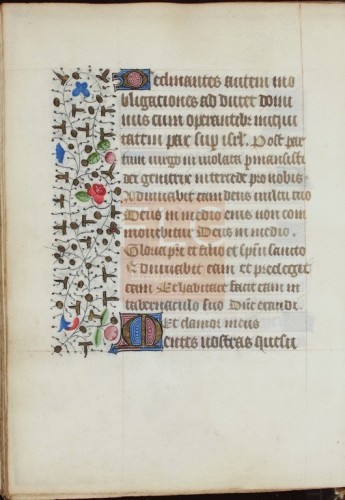 Declinantes autem in o
bligaciones ad ducet domi
nus cum operantibus iniqui
tatem pax sup isrl. Post par
tum virgo in violata pmansisti
dei genitrix intercede pro nobis
Adiuvabit eam deus multu suo
Deus in medio eius non com
movebitur Deus in medio.
Gloria pri et filio et spui sancto
Adiuvabit eam et preeleget
eam Et habitare facit eam in
tabernaculo suo Dne exaudi.
Et clamor meus
Mentes nostras quesu